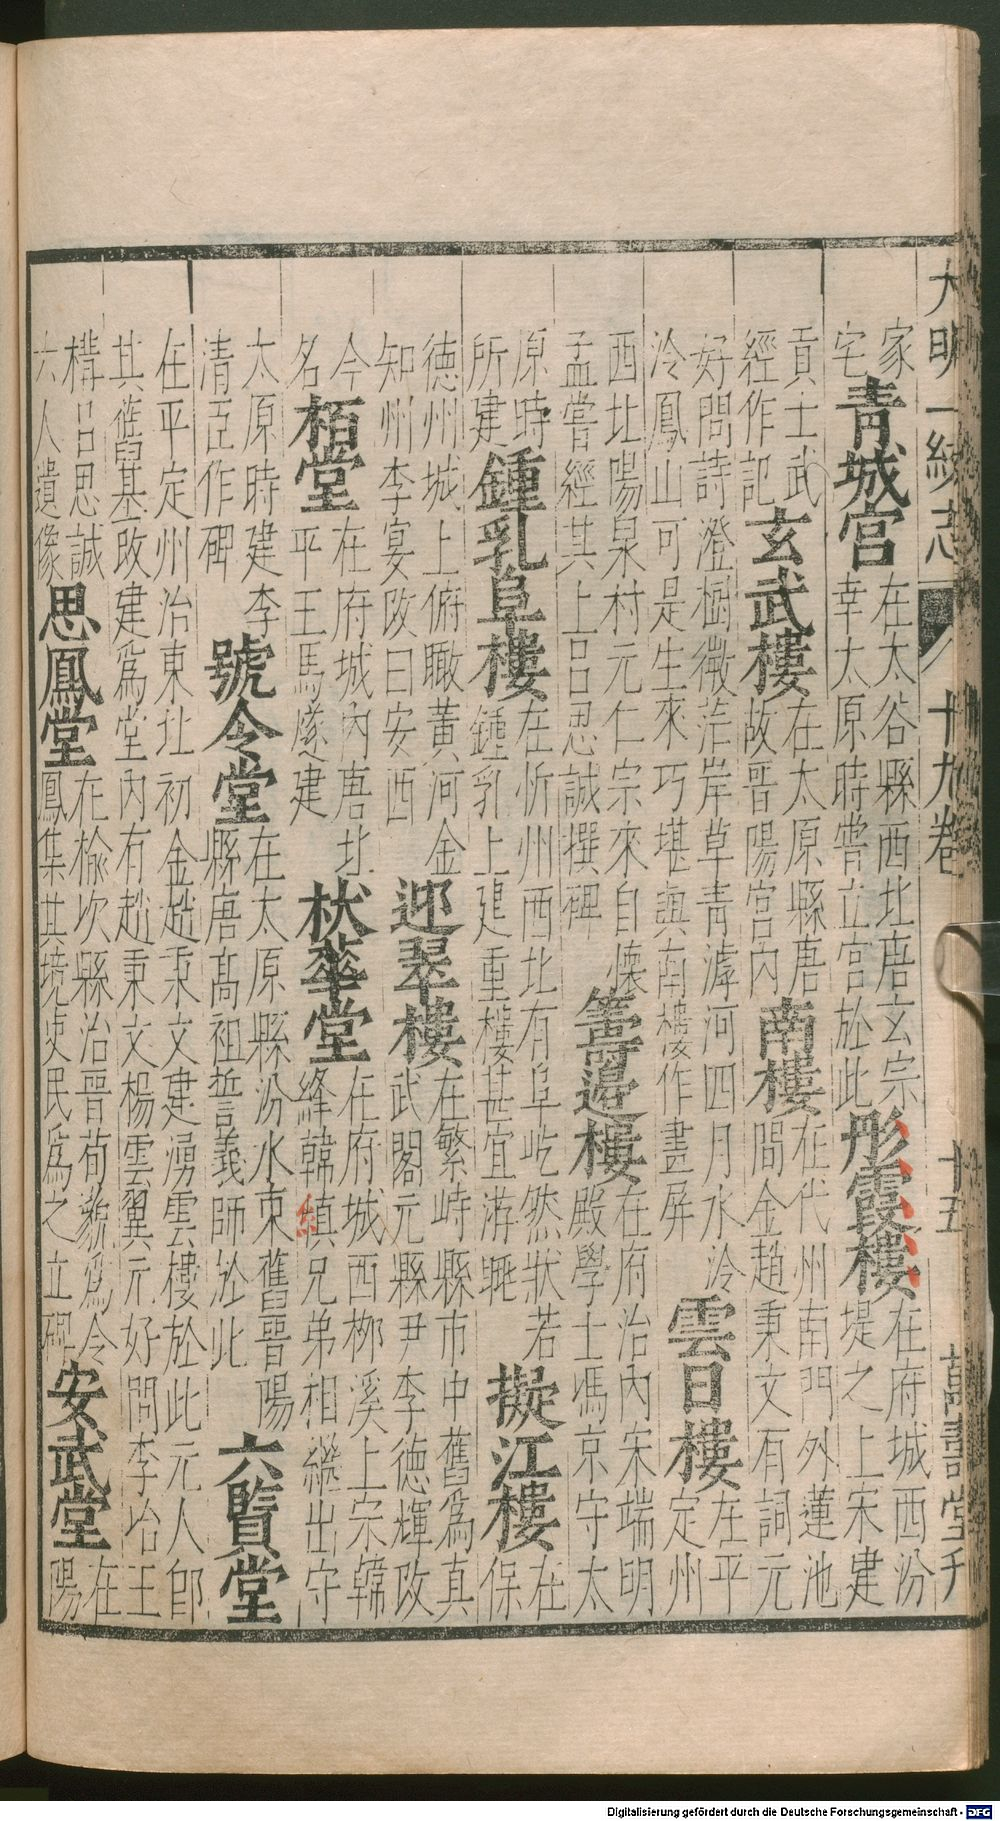 大明一統志 十九卷 十五 萬壽堂刊
家
宅
青城宮
在太谷縣西北唐玄宗
幸太原時嘗立宮於此
彤霞樓
在府城西汾
堤之上宋建
貢士武
經作記
玄武樓
在太原縣唐
故晉陽宮內
南樓
在代州南門外蓮池
間金趙秉文有詞元
好問詩澄樹微茫岸草青滹河四月水泠
泠鳳山可是生來巧堪與南樓作畫屏
雲日樓
在平
定州
西北陽泉村元仁宗來自懷
孟嘗經其上呂思誠撰碑
籌邊樓
在府治內宋端明
殿學士馮京守太
原時
所建
鍾乳阜樓
在忻州西北有阜屹然狀若
鍾乳上建重樓甚宜游眺
擬江樓
在
保
德州城上俯瞰黃河金
知州李宴改曰安西
迎翠樓
在繁峙縣市中舊為真
武閣元縣尹李德輝改
今
名
栢堂
在府城內唐北
平王馬燧建
杕華堂
在府城西柳溪上宋韓
絳韓縝兄弟相繼出守
太原時建李
清臣作碑
號令堂
在太原縣汾水東舊晉陽
縣唐高祖誓義師於此
六賢堂
在平定州治東北初金趙秉文建湧雲樓於此元人卽
其舊基改建爲堂內有趙秉文楊雲翼元好問李冶王
構呂思誠
六人遺像
思鳳堂
在榆次縣治晉荀藐爲令
鳳集其境吏民爲之立碑
安武堂
在
陽
Digitalisierung gefördert durch die Deutsche Forschungsgemeinschaft - DFG